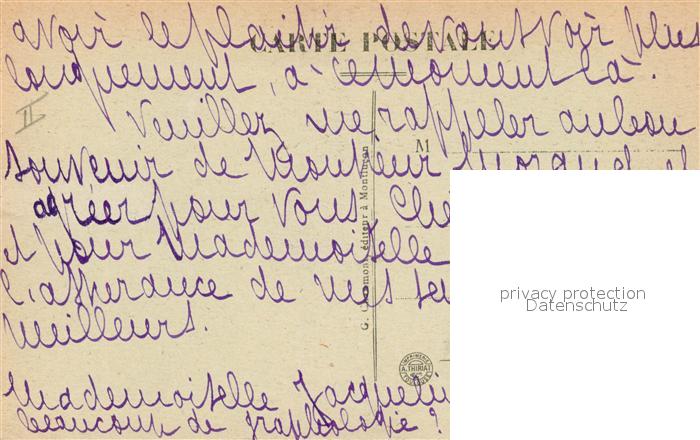 CARTE POSTALE
avoir le plaisir de vous voir plus
longuement, à ce moment là.
II
Veuillez me rappeler au bon
M
souvenir de Monsieur et
agréer pour vous
et pour Mademoiselle
l'assurance de mes
meilleurs.
Mademoiselle
beaucoup de graphologie?
éditeur à Montluçon
IMPRIMERIE
A. THIRIAT
privacy protection
Datenschutz